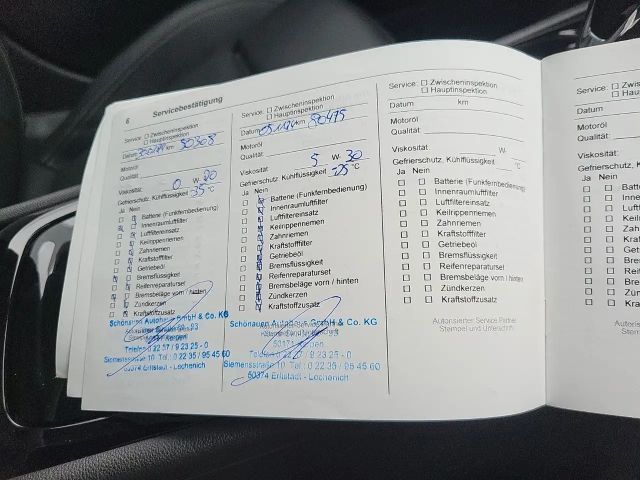 6 Servicebestätigung
Service: ☐ Zwischeninspektion
☐ Hauptinspektion
Datum km 50308
Motoröl
Qualität:
Viskosität: 0 W- 20
Gefrierschutz, Kühlflüssigkeit -35 °C
Ja Nein
Batterie (Funkfernbedienung)
Innenraumluftfilter
Luftfiltereinsatz
Keilrippenriemen
Zahnriemen
Kraftstofffilter
Getriebeöl
Bremsflüssigkeit
Reifenreparaturset
Bremsbeläge vorn / hinten
Zündkerzen
Kraftstoffzusatz
Schönauen Autohaus GmbH & Co. KG
Telefon 0 22 37 / 9 23 25 - 0
Siemensstraße 10 Tel.: 0 22 35 / 95 45 60
50374 Erftstadt - Lechenich
Service: ☐ Zwischeninspektion
☐ Hauptinspektion
Datum km 80475
Motoröl
Qualität:
Viskosität: 5 W- 30
Gefrierschutz, Kühlflüssigkeit -25 °C
Ja Nein
Batterie (Funkfernbedienung)
Innenraumluftfilter
Luftfiltereinsatz
Keilrippenriemen
Zahnriemen
Kraftstofffilter
Getriebeöl
Bremsflüssigkeit
Reifenreparaturset
Bremsbeläge vorn / hinten
Zündkerzen
Kraftstoffzusatz
Schönauen Autohaus GmbH & Co. KG
50171 Kerpen
Telefon 0 22 37 / 9 23 25 - 0
Siemensstraße 10 Tel.: 0 22 35 / 95 45 60
50374 Erftstadt - Lechenich
Service: ☐ Zwischeninspektion
☐ Hauptinspektion
Datum km
Motoröl
Qualität:
Viskosität: W-
Gefrierschutz, Kühlflüssigkeit °C
Ja Nein
☐ ☐ Batterie (Funkfernbedienung)
☐ ☐ Innenraumluftfilter
☐ ☐ Luftfiltereinsatz
☐ ☐ Keilrippenriemen
☐ ☐ Zahnriemen
☐ ☐ Kraftstofffilter
☐ ☐ Getriebeöl
☐ ☐ Bremsflüssigkeit
☐ ☐ Reifenreparaturset
☐ ☐ Bremsbeläge vorn / hinten
☐ ☐ Zündkerzen
☐ ☐ Kraftstoffzusatz
Autorisierter Service Partner
Stempel und Unterschrift
Service: ☐
Datum
Motoröl
Qualität:
Viskosität:
Gefrierschutz, K
Ja Nein
☐ ☐ Batt
☐ ☐ Inne
☐ ☐ Luft
☐ ☐ Keil
☐ ☐ Zah
☐ ☐ Kra
☐ ☐ Get
☐ ☐ Bre
☐ ☐ Rei
☐ ☐ Bre
☐ ☐ Zün
☐ ☐ Kra